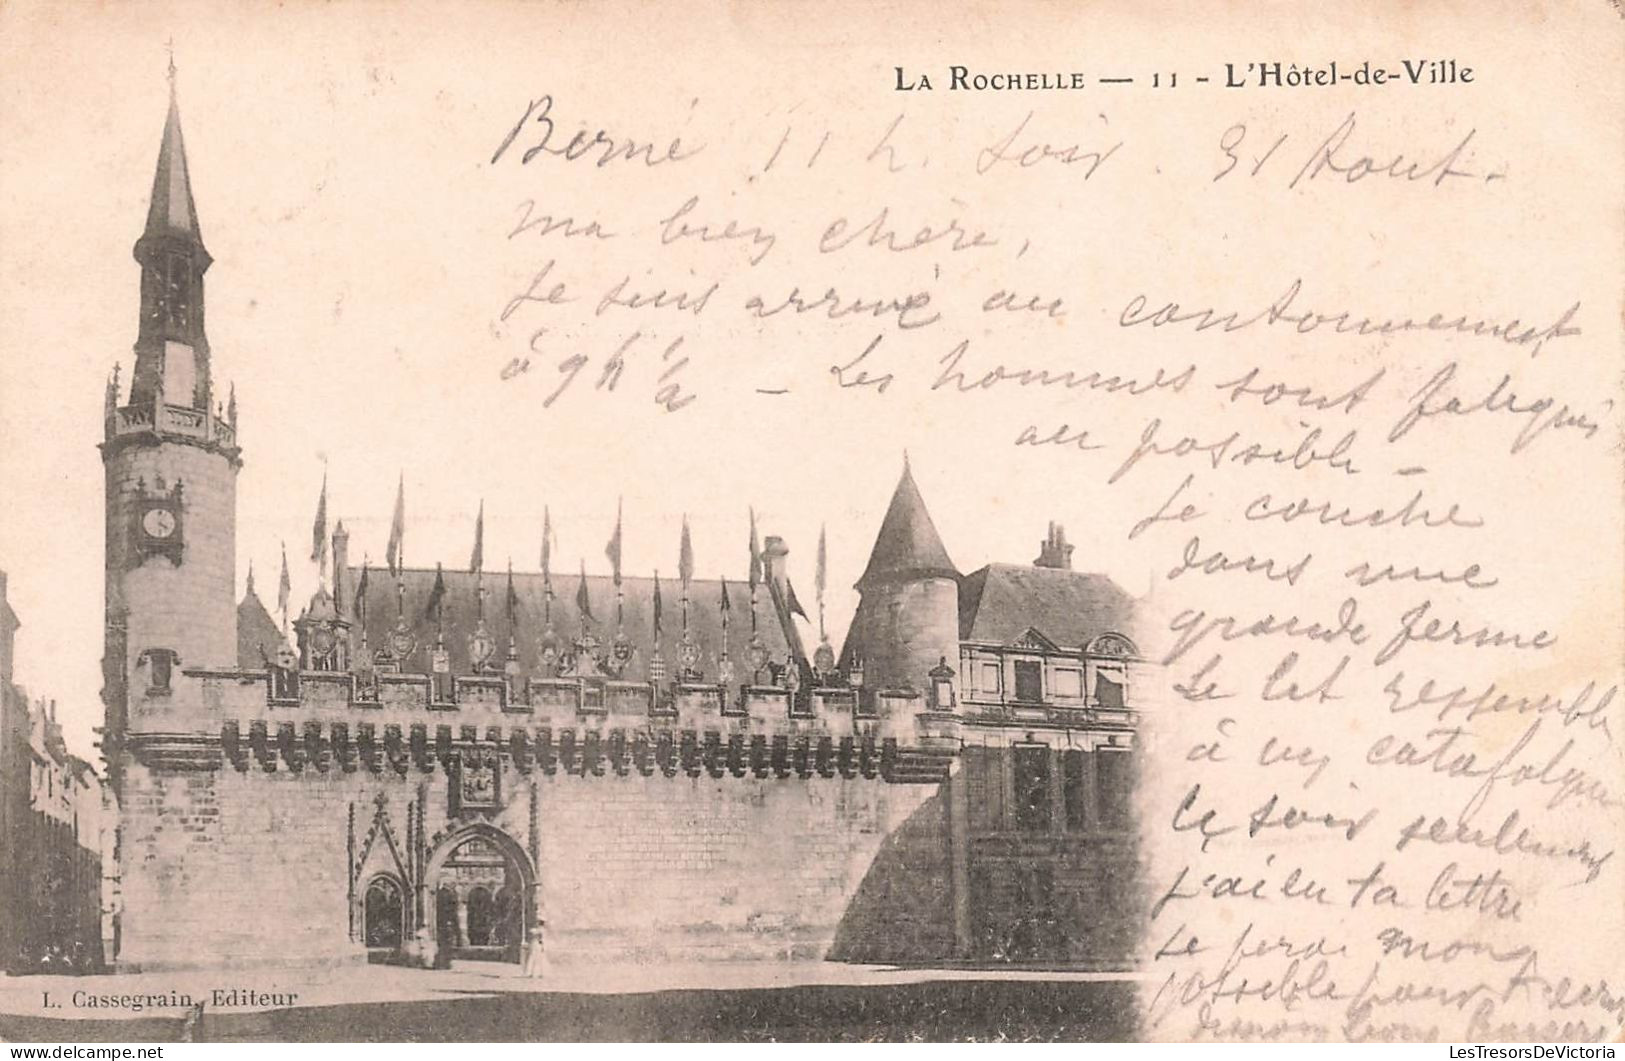 LA ROCHELLE — 11 - L'Hôtel-de-Ville
Berné 11 h. Soir. 31 Aout.
ma bien chère,
Je suis arrivé au cantonnement
à 9h ½ - Les hommes sont fatigués
au possible -
Je couche
dans une
grande ferme
Le lit ressemble
à un catafalque
Ce soir seulement
J'ai eu ta lettre
Je ferai mon
possible pour
L. Cassegrain, Editeur
LesTresorsDeVictoria